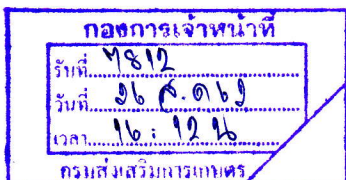 กองการเจ้าหน้าที่
รับที่ 7812
วันที่ 26 ส.ค. 62
เวลา 16:12 น
กรมส่งเสริมการเกษตร